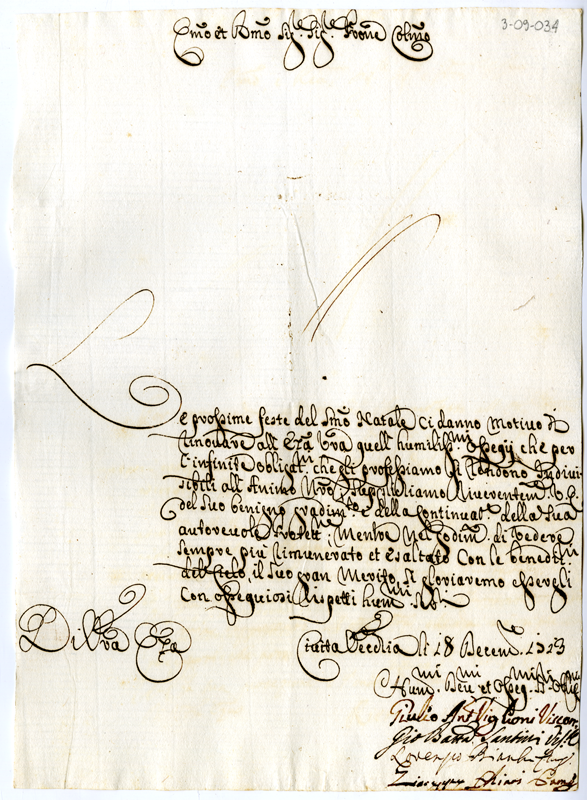 3-09-034
Emo et Rmo Sig.re Sig.re Prone Colmo
Le prossime feste del Smo Natale ci danno Motivo di
rinovare all' Eza Vra quell' humiliss.mi Ossequij che per
l'infinite obligat.ni che gli professiamo si rendono Indivi-
sibili all' Animo Nro. Supplichiamo riverentem.te V. E.
del Suo benigno gradim.to e della continuat.ne della Sua
autorevole Protett.ne; Mentre Nel godim.to di vedere
sempre più rimunerato et esaltato Con le benedit.ni
del Cielo, il Suo gran Merito, Si gloriaremo essergli
Con ossequiosi rispetti
Di Vra Eza
Civita Vecchia li 18 Decem.
Hum.mi Dev.mi et Obleg.mi
Giulio Ant. Viglioni Viscon
Gio Batta Santini
Lorenzo